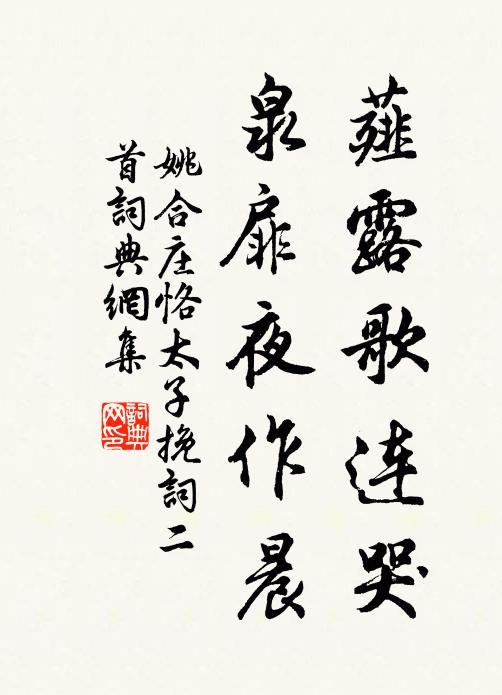 薤露歌连哭
泉扉夜作晨
姚合庄恪太子挽詞二
首詞典網集
詞典
网印